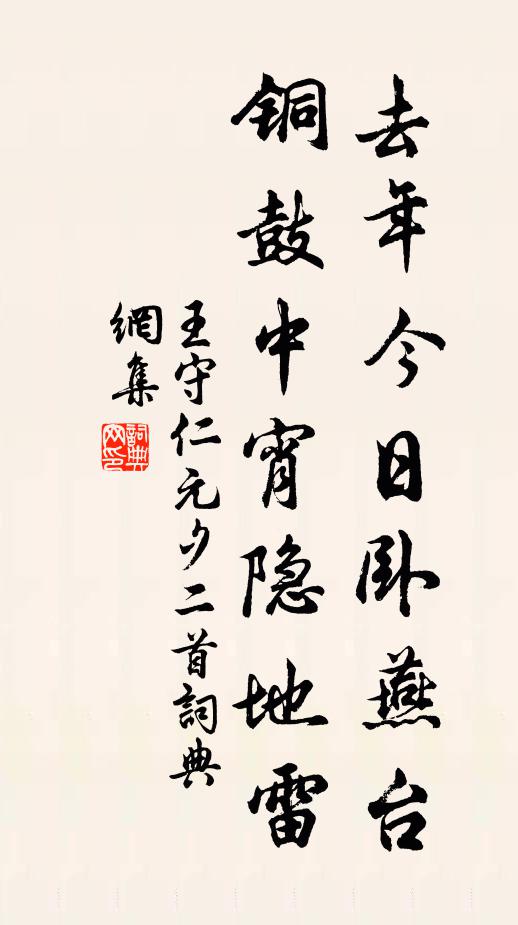 去年今日卧燕台
铜鼓中宵隐地雷
王守仁元夕二首詞典
網集
詞典網印